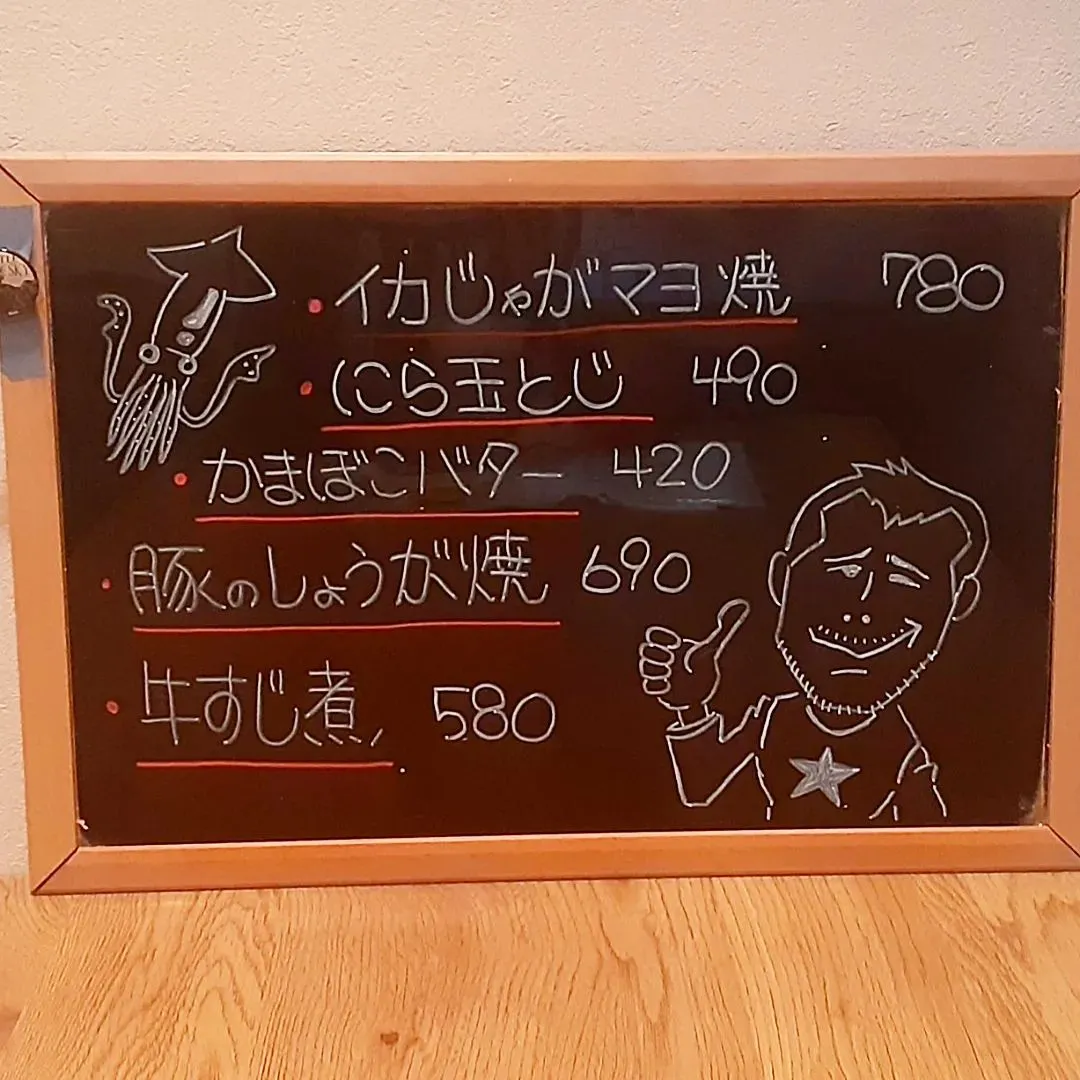 ・イカじゃがマヨ焼 780
・にら玉とじ 490
・かまぼこバター 420
・豚のしょうが焼 690
・牛すじ煮 580